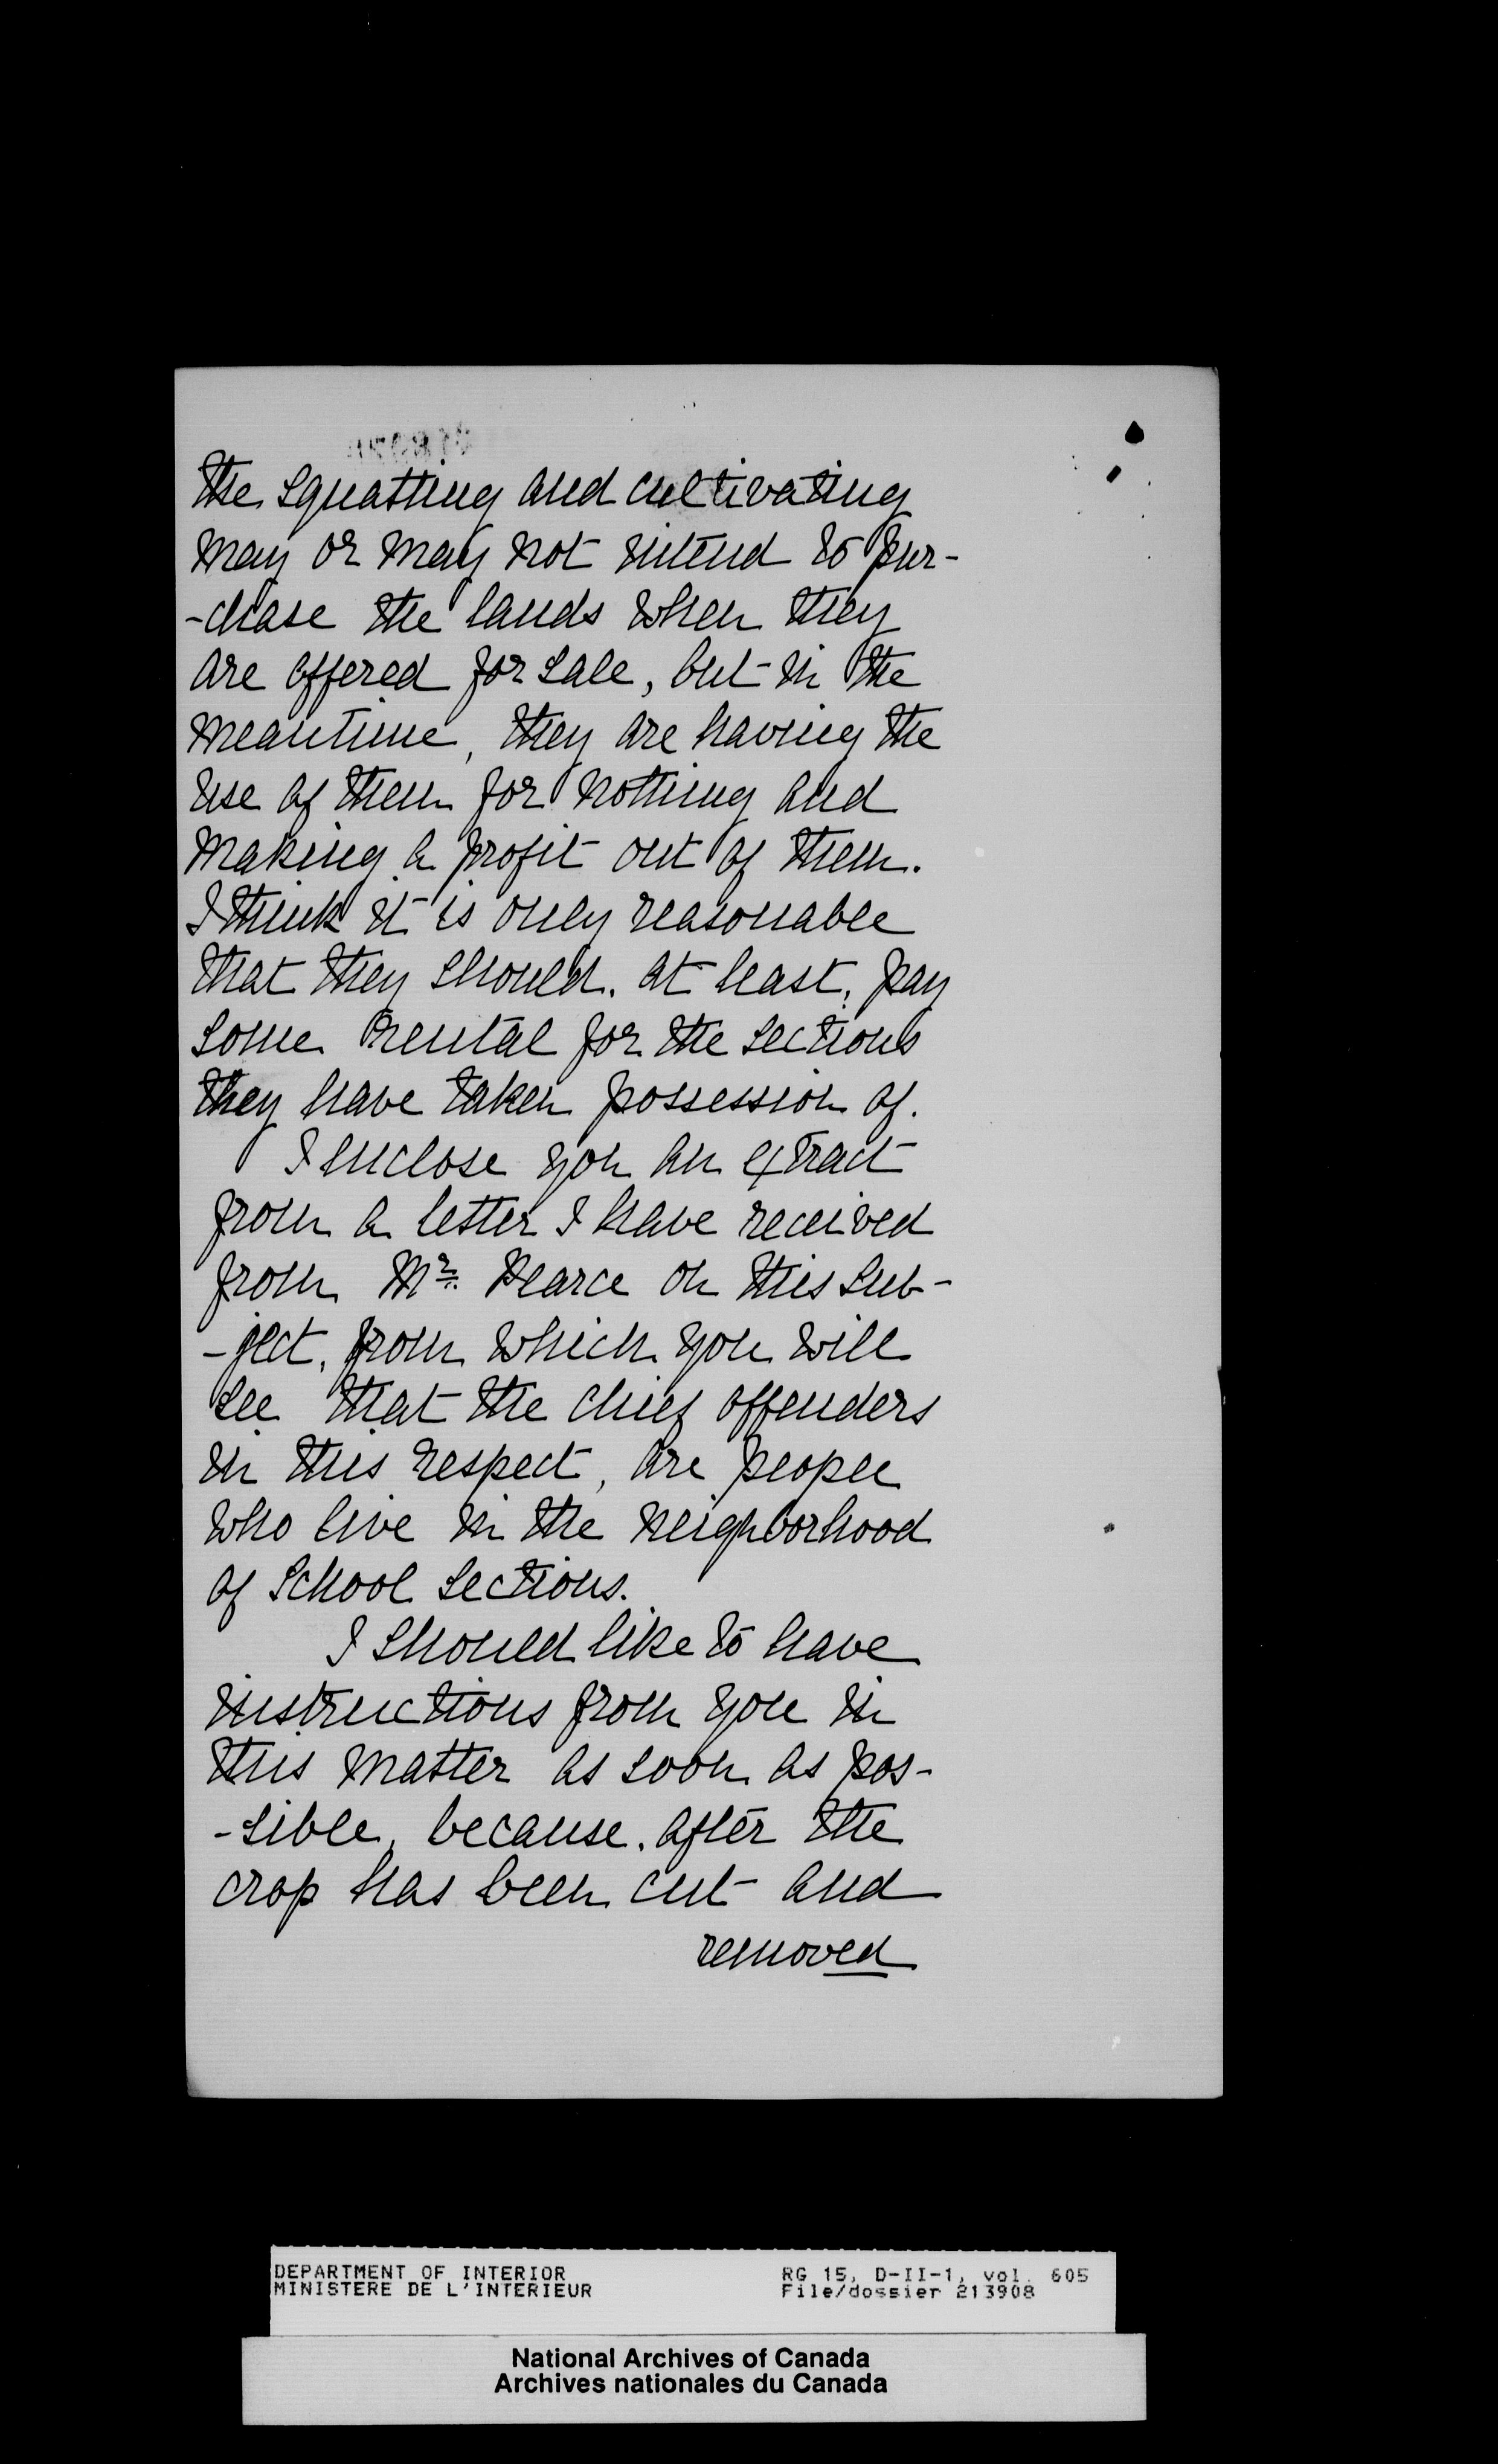 the squatting and cultivating
may or may not intend to pur-
-chase the lands when they
are offered for sale, but in the
meantime, they are having the
use of them for nothing and
making a profit out of them.
I think it is only reasonable
that they should, at least, pay
some rental for the sections
they have taken possession of.
I enclose you an extract
from a letter I have received
from Mr. Pearce on this sub-
-ject, from which you will
see that the chief offenders
in this respect, are people
who live in the neighborhood
of School Sections.
I should like to have
instructions from you in
this matter as soon as pos-
-sible, because, after the
crop has been cut and
removed
DEPARTMENT OF INTERIOR RG 15, D-II-1, vol. 605
MINISTERE DE L'INTERIEUR File/dossier 213908
National Archives of Canada
Archives nationales du Canada